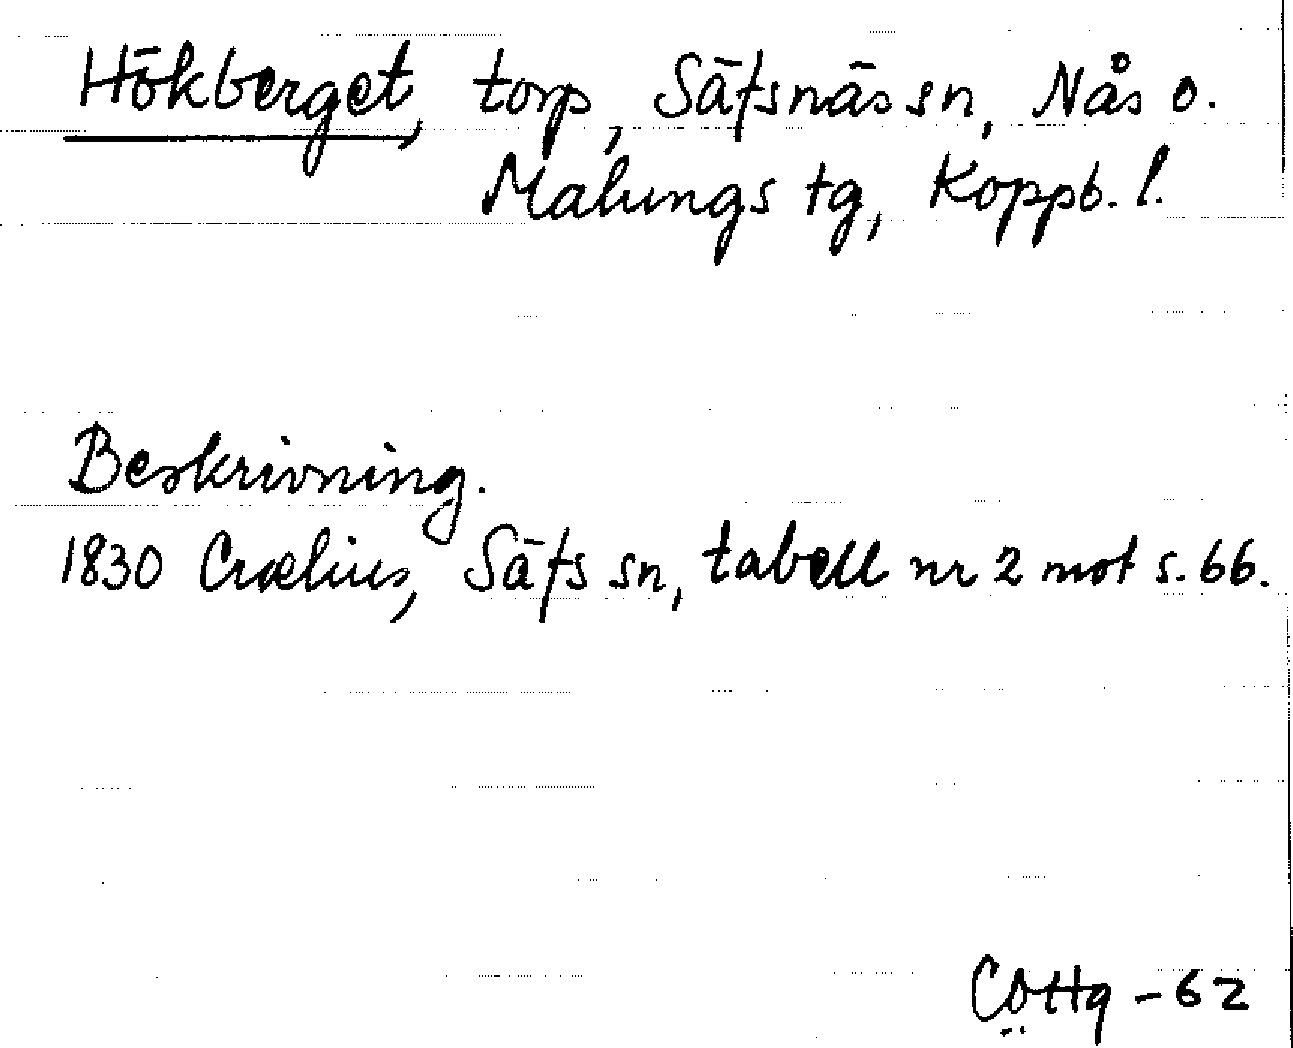 Hökberget, torp, Säfsnäs sn, Nås o.
Malungs tg, Koppb. l.
Beskrivning.
1830 Crælius, Säfs sn, tabell nr 2 mot s. 66.
-62